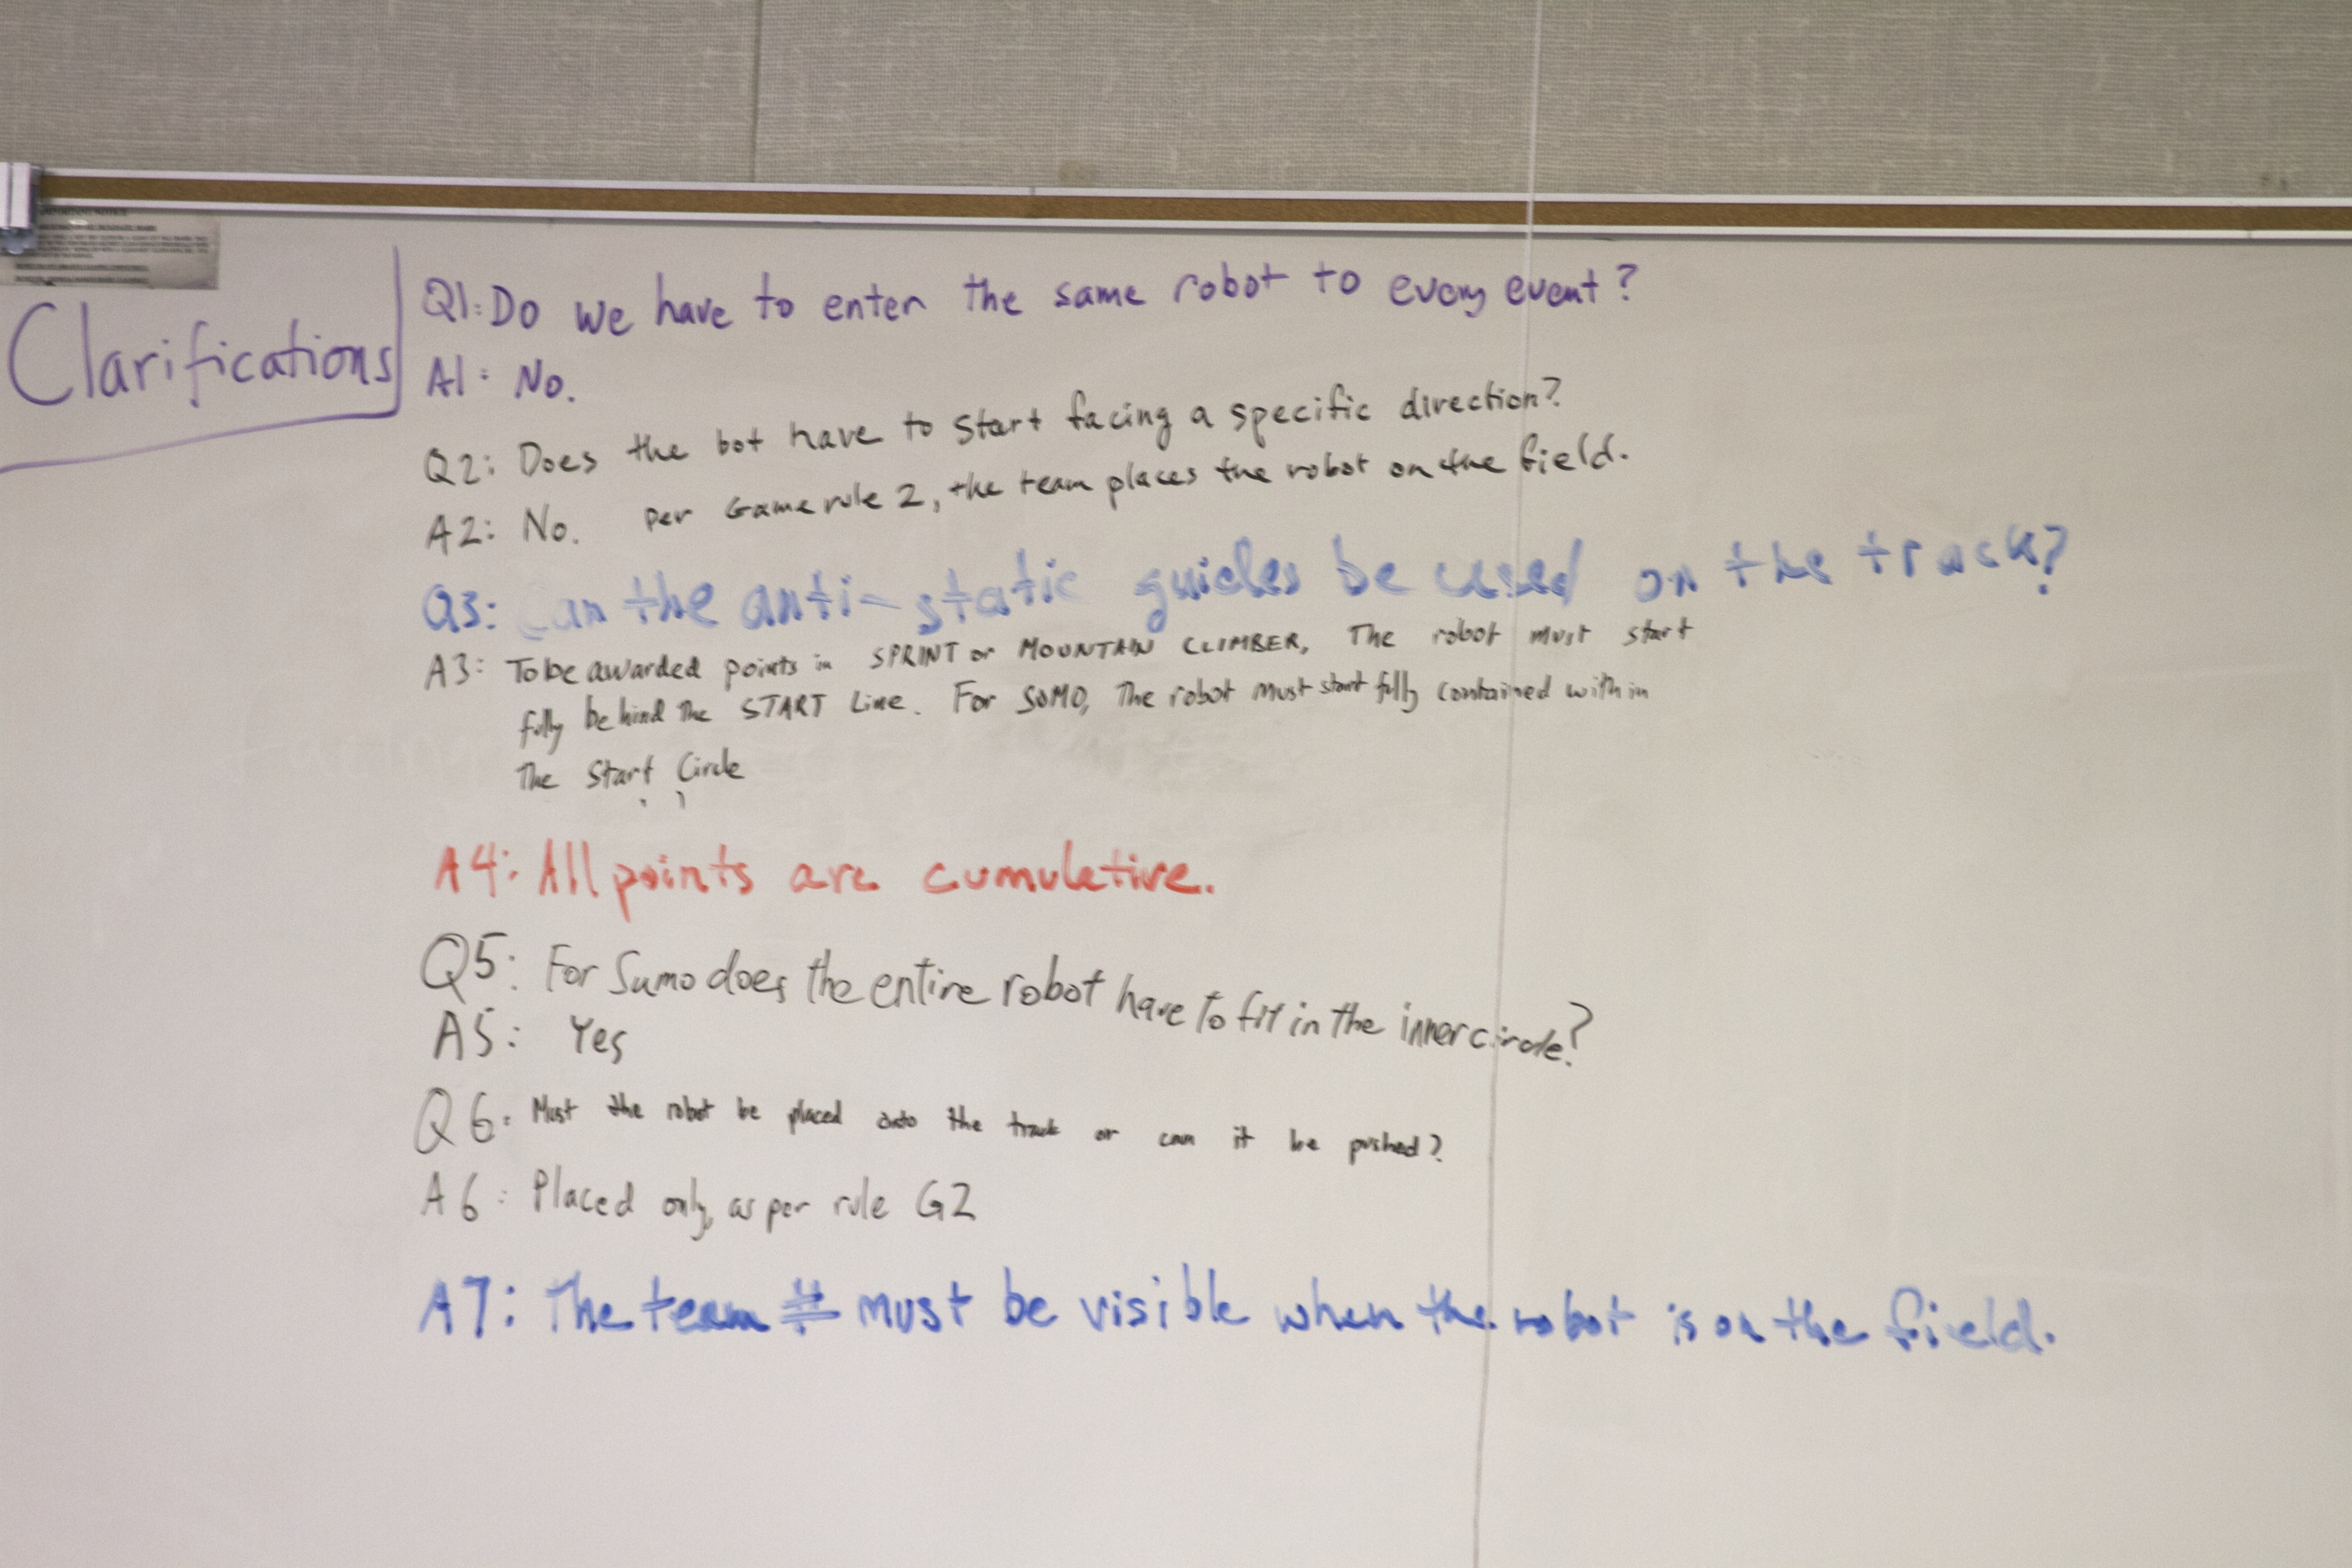 Clarifications
Q1: Do we have to enter the same robot to every event?
A1: No.
Q2: Does the bot have to start facing a specific direction?
A2: No. per Game rule 2, the team places the robot on the field.
Q3: Can the anti-static guides be used on the track?
A3: To be awarded points in SPRINT or MOUNTAIN CLIMBER, The robot must start
fully behind The START Line. For SUMO, The robot must start fully contained within
The Start Circle
A4: All points are cumulative.
Q5: For Sumo does the entire robot have to fit in the inner circle?
A5: Yes
Q6: Must the robot be placed onto the track or can it be pushed?
A6: Placed only, as per rule G2
A7: The team # must be visible when the robot is on the field.